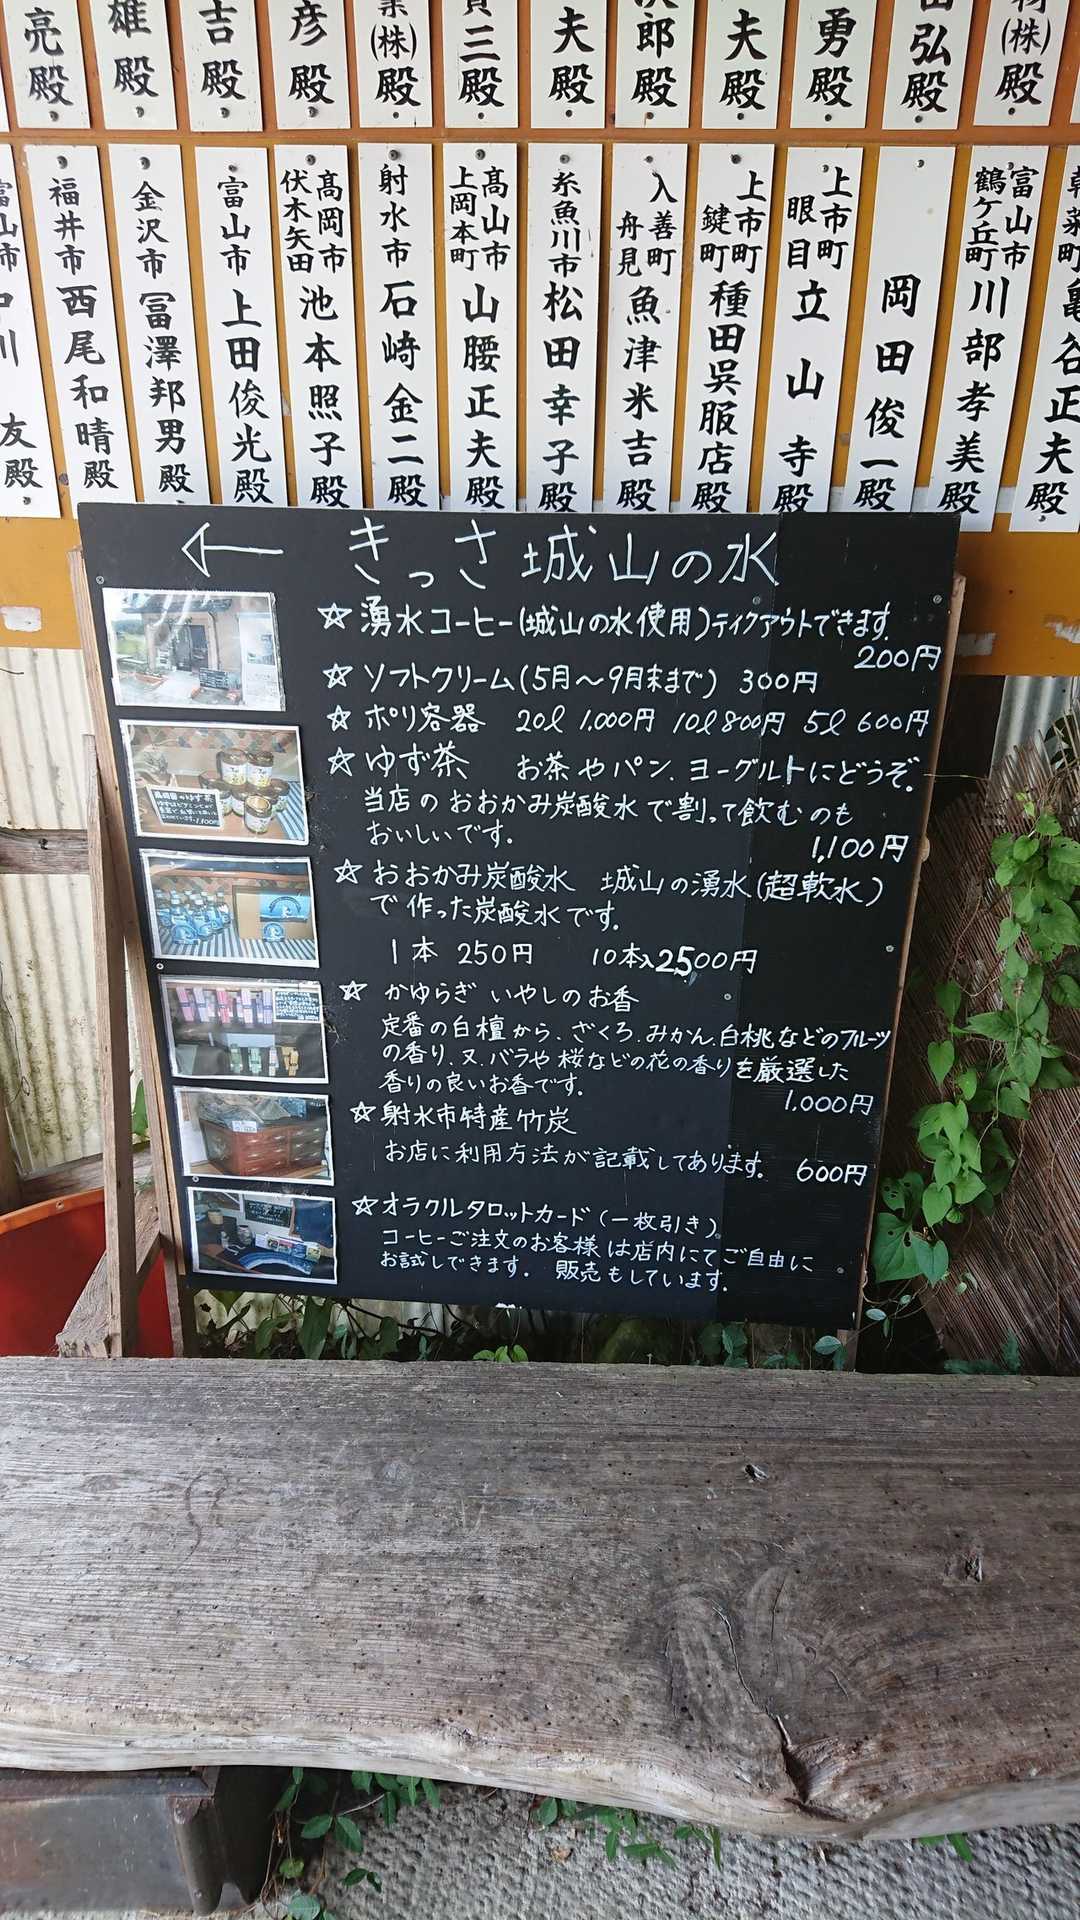 亮殿
雄殿
吉殿
彦殿
業(株)殿
三殿
夫殿
郎殿
夫殿
勇殿
弘殿
(株)殿
富山市 中川 友殿
福井市 西尾和晴殿
金沢市 冨澤邦男殿
富山市 上田俊光殿
高岡市伏木矢田 池本照子殿
射水市 石崎金二殿
高山市上岡本町 山腰正夫殿
糸魚川市 松田幸子殿
入善町舟見 魚津米吉殿
上市町鍵町 種田呉服店殿
上市町眼目 立山寺殿
岡田俊一殿
富山市鶴ケ丘町 川部孝美殿
朝菜町 亀谷正夫殿
← きっさ 城山の水
☆ 湧水コーヒー(城山の水使用)ティクアウトできます。
200円
☆ ソフトクリーム(5月〜9月末まで) 300円
☆ ポリ容器 20ℓ 1,000円 10ℓ 800円 5ℓ 600円
☆ ゆず茶 お茶やパン、ヨーグルトにどうぞ。
当店のおおかみ炭酸水で割って飲むのも
おいしいです。
1,100円
☆ おおかみ炭酸水 城山の湧水(超軟水)
で作った炭酸水です。
1本 250円 10本入2500円
☆ かゆらぎ いやしのお香
定番の白檀から、ざくろ、みかん、白桃などのフルーツ
の香り、又、バラや桜などの花の香りを厳選した
香りの良いお香です。
1,000円
☆ 射水市特産竹炭
お店に利用方法が記載してあります。 600円
☆ オラクルタロットカード(一枚引き)
コーヒーご注文のお客様は店内にてご自由に
お試しできます。 販売もしています。